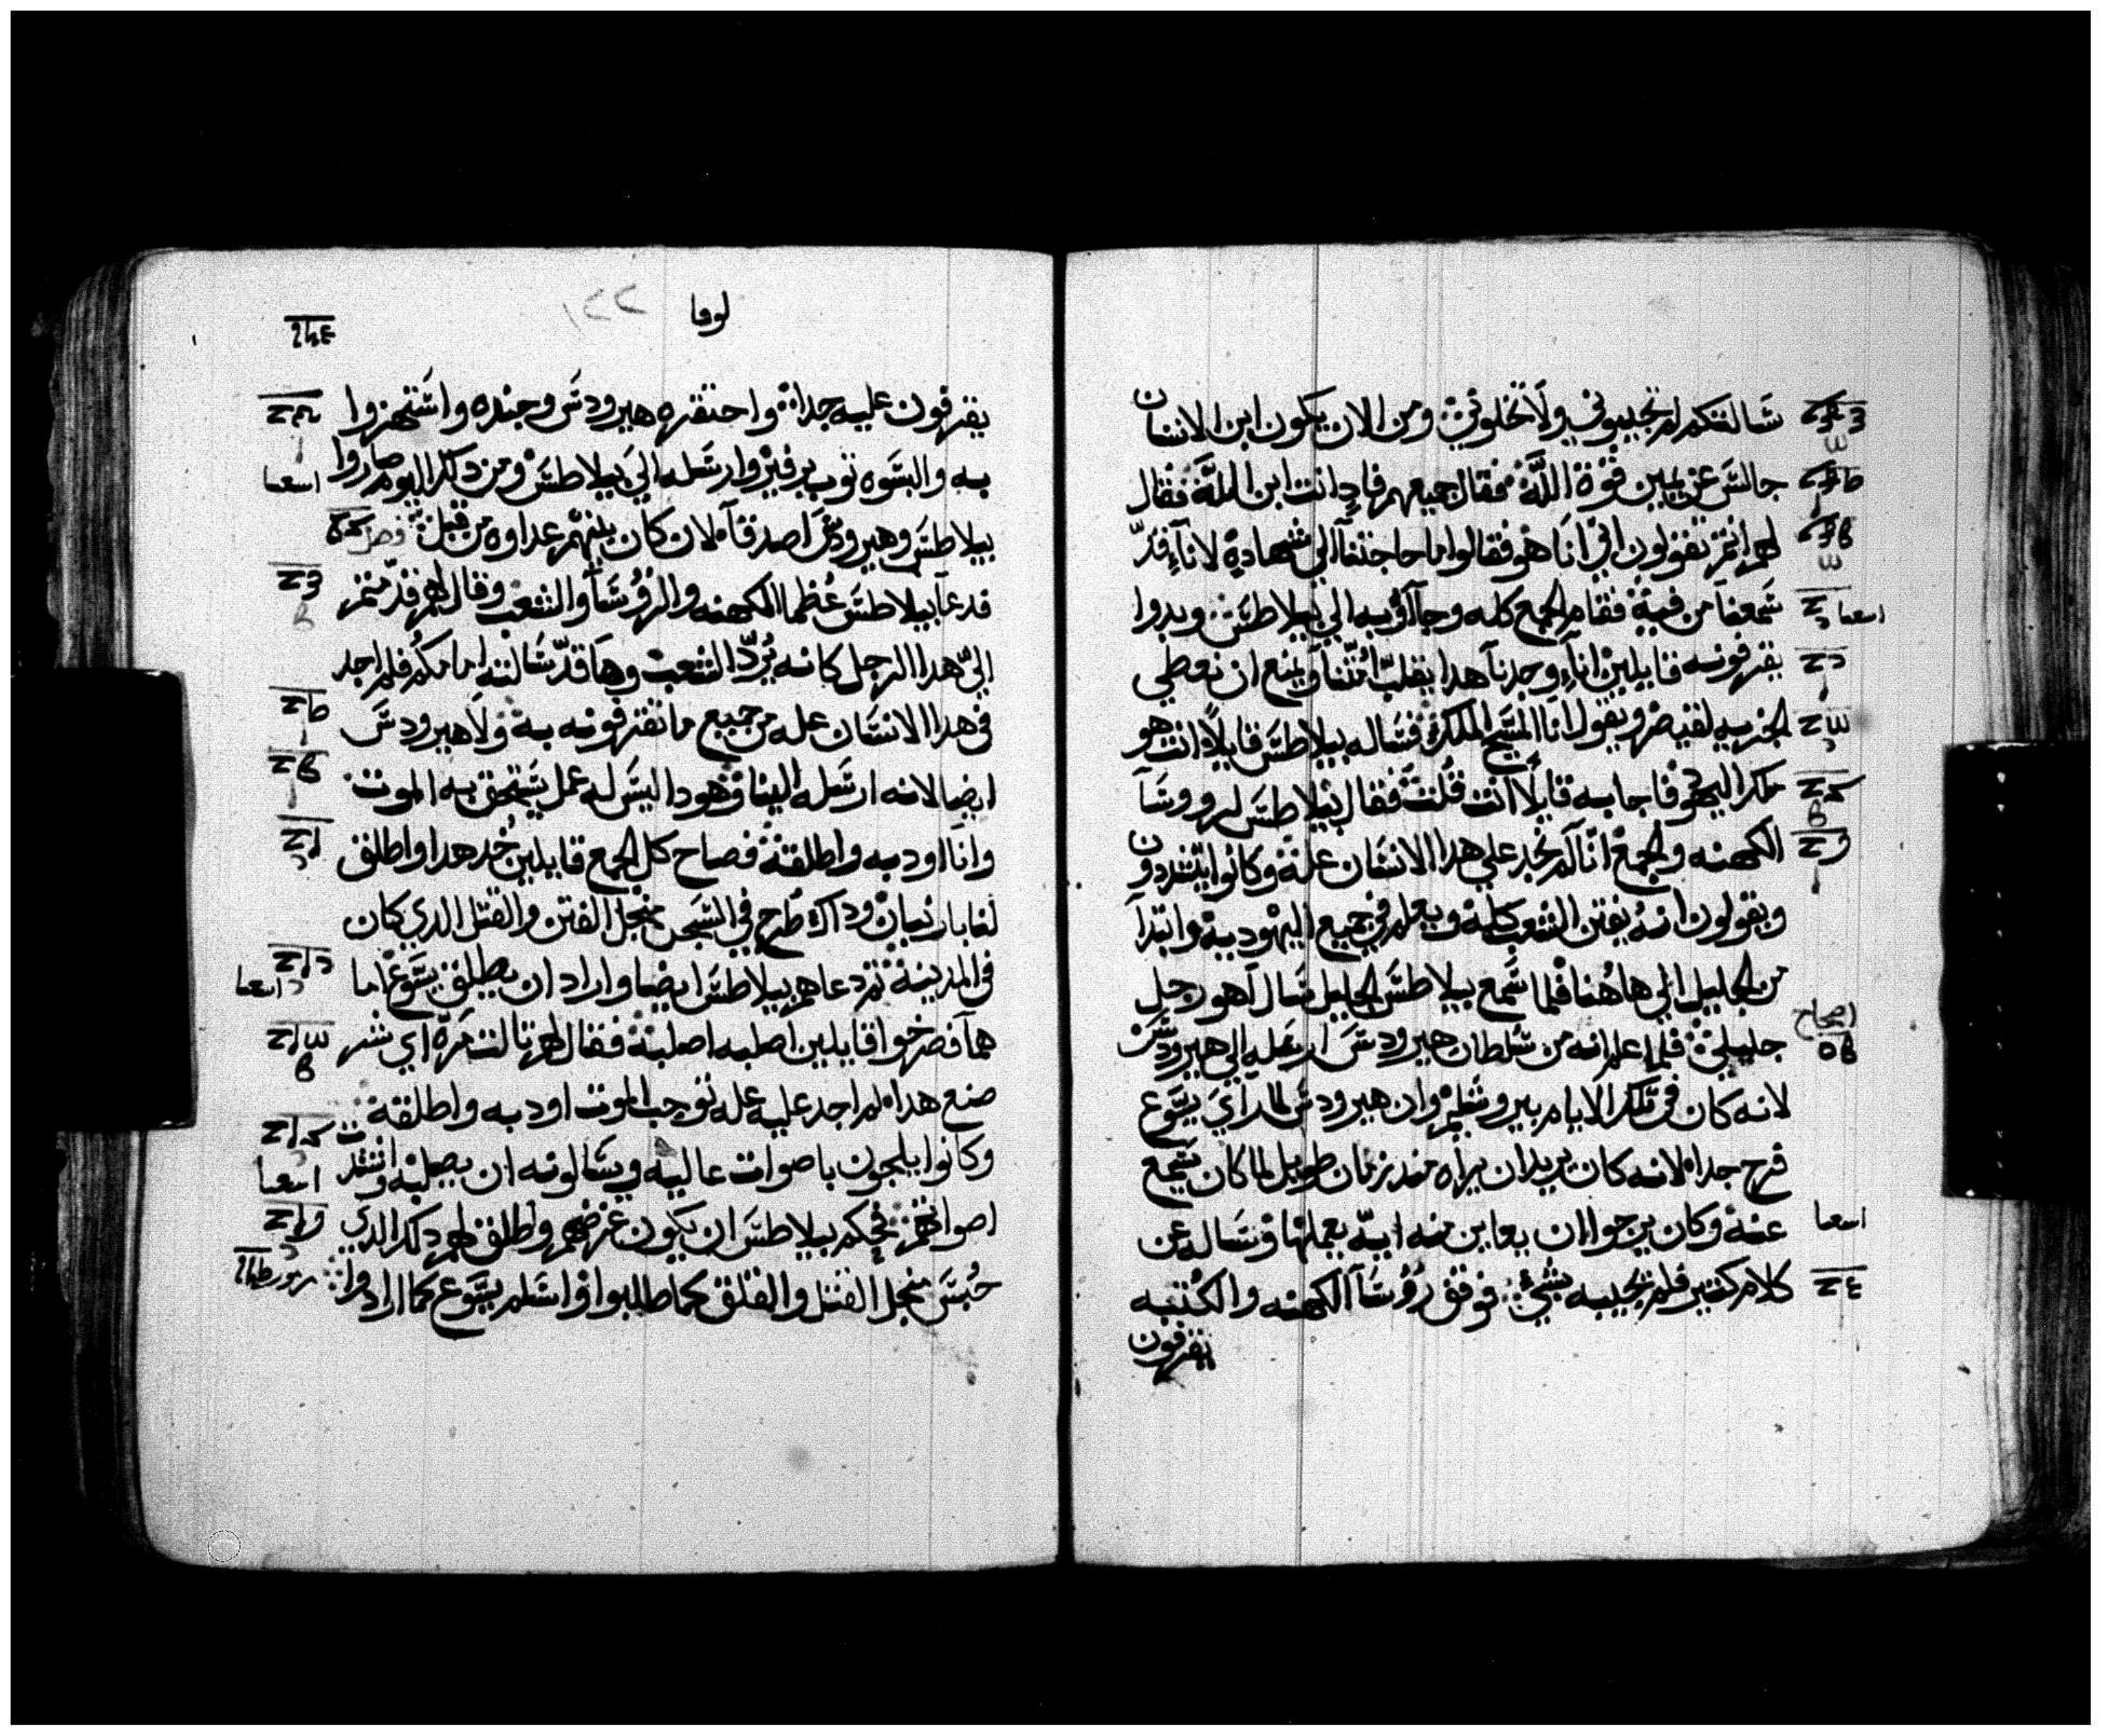 سالتكم لم تجيبوني ولا تخلوني ومن الان يكون ابن الانسان
جالس عن يمين قوة الله فقال جميعهم فادا انت ابن الله فقال
لهم انتم تقولون اني انا هو فقالوا ما حاجتنا الي شهادة لانا قد
سمعنا من فيه فقام الجمع كله وجاؤا به الي بيلاطس وبدوا
يقرفونه قايلين انا وجدنا هدا يقلب امتنا ويمنع ان نعطي
الجزيه لقيصر ويقول انا المسيح الملك فساله بيلاطس قايلا انت هو
ملك اليهود فاجابه قايلا انت قلت فقال بيلاطس لروسا
الكهنه والجمع انا لم نجد علي هدا الانسان علة وكانوا يتشددون
ويقولون انه يفتن الشعب كله ويعلم في جميع اليهودية وابتدا
من الجليل الي هاهنا فلما سمع بيلاطس الجليل سال اهو رجل
جليلي فلما علم انه من سلطان هيرودس ارسله الي هيرودس
لانه كان في تلك الايام بيروشليم وان هيرودس لما راي يسوع
فرح جدا لانه كان يريد ان يراه مند زمان طويل لما كان يسمع
عنه وكان يرجوا ان يعاين منه اية يعملها وساله عن
كلام كتير فلم يجيبه بشي فوقف رؤسا الكهنه والكتبه
يقرفون
اصحاح
لوقا
١٢٢
يقرفون عليه جدا واحتقره هيرودس وجنده واستهزوا
به والبسوه توب برفير وارسله الي بيلاطس ومن دلك اليوم صاروا
بيلاطس وهيرودس اصدقا لان كان بينهم عداوه من قبل فصل
فدعا بيلاطس عظما الكهنه والرؤسا والشعب وقال لهم قدمتم
الي هدا الرجل كانه يرد الشعب وها قد سالته امامكم فلم اجد
في هدا الانسان عله من جميع ما تقرفونه به ولا هيرودس
ايضا لانه ارسله الينا وهودا ليس له عمل يستحق به الموت
وانا اودبه واطلقه فصاح كل الجمع قايلين خد هدا واطلق
لنا باربان وداك طرح في السجن منجل الفتن والقتل الدي كان
في المدينة تم دعاهم بيلاطس ايضا واراد ان يطلق يسوع اما
هما فصرخوا قايلين اصلبه اصلبه فقال لهم تالت مرة اي شر
صنع هدا لم اجد عليه عله توجب الموت اودبه واطلقه
وكانوا يلجون باصوات عاليه ويسالونه ان يصلبه واشتدت
اصواتهم فحكم بيلاطس ان يكون غرضهم واطلق لهم دلك الدي
حبس منجل القتل والقلق كما طلبوا واسلم يسوع كما ارادوا